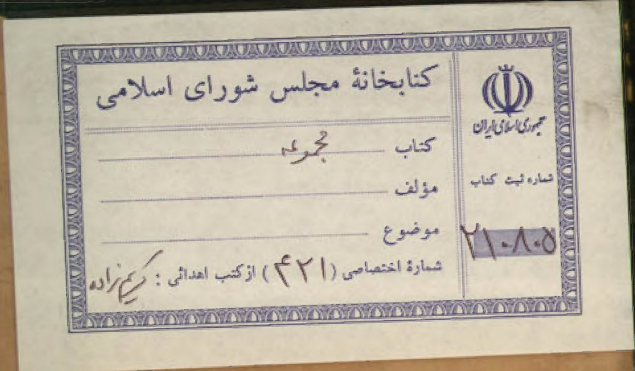 کتابخانهٔ مجلس شورای اسلامی
کتاب مجموعه
مؤلف
موضوع
شمارهٔ اختصاصی (۴۲۱) از کتب اهدائی: کریم‌زاده
جمهوری اسلامی ایران
شماره ثبت کتاب
۲۱۰۸۰۵